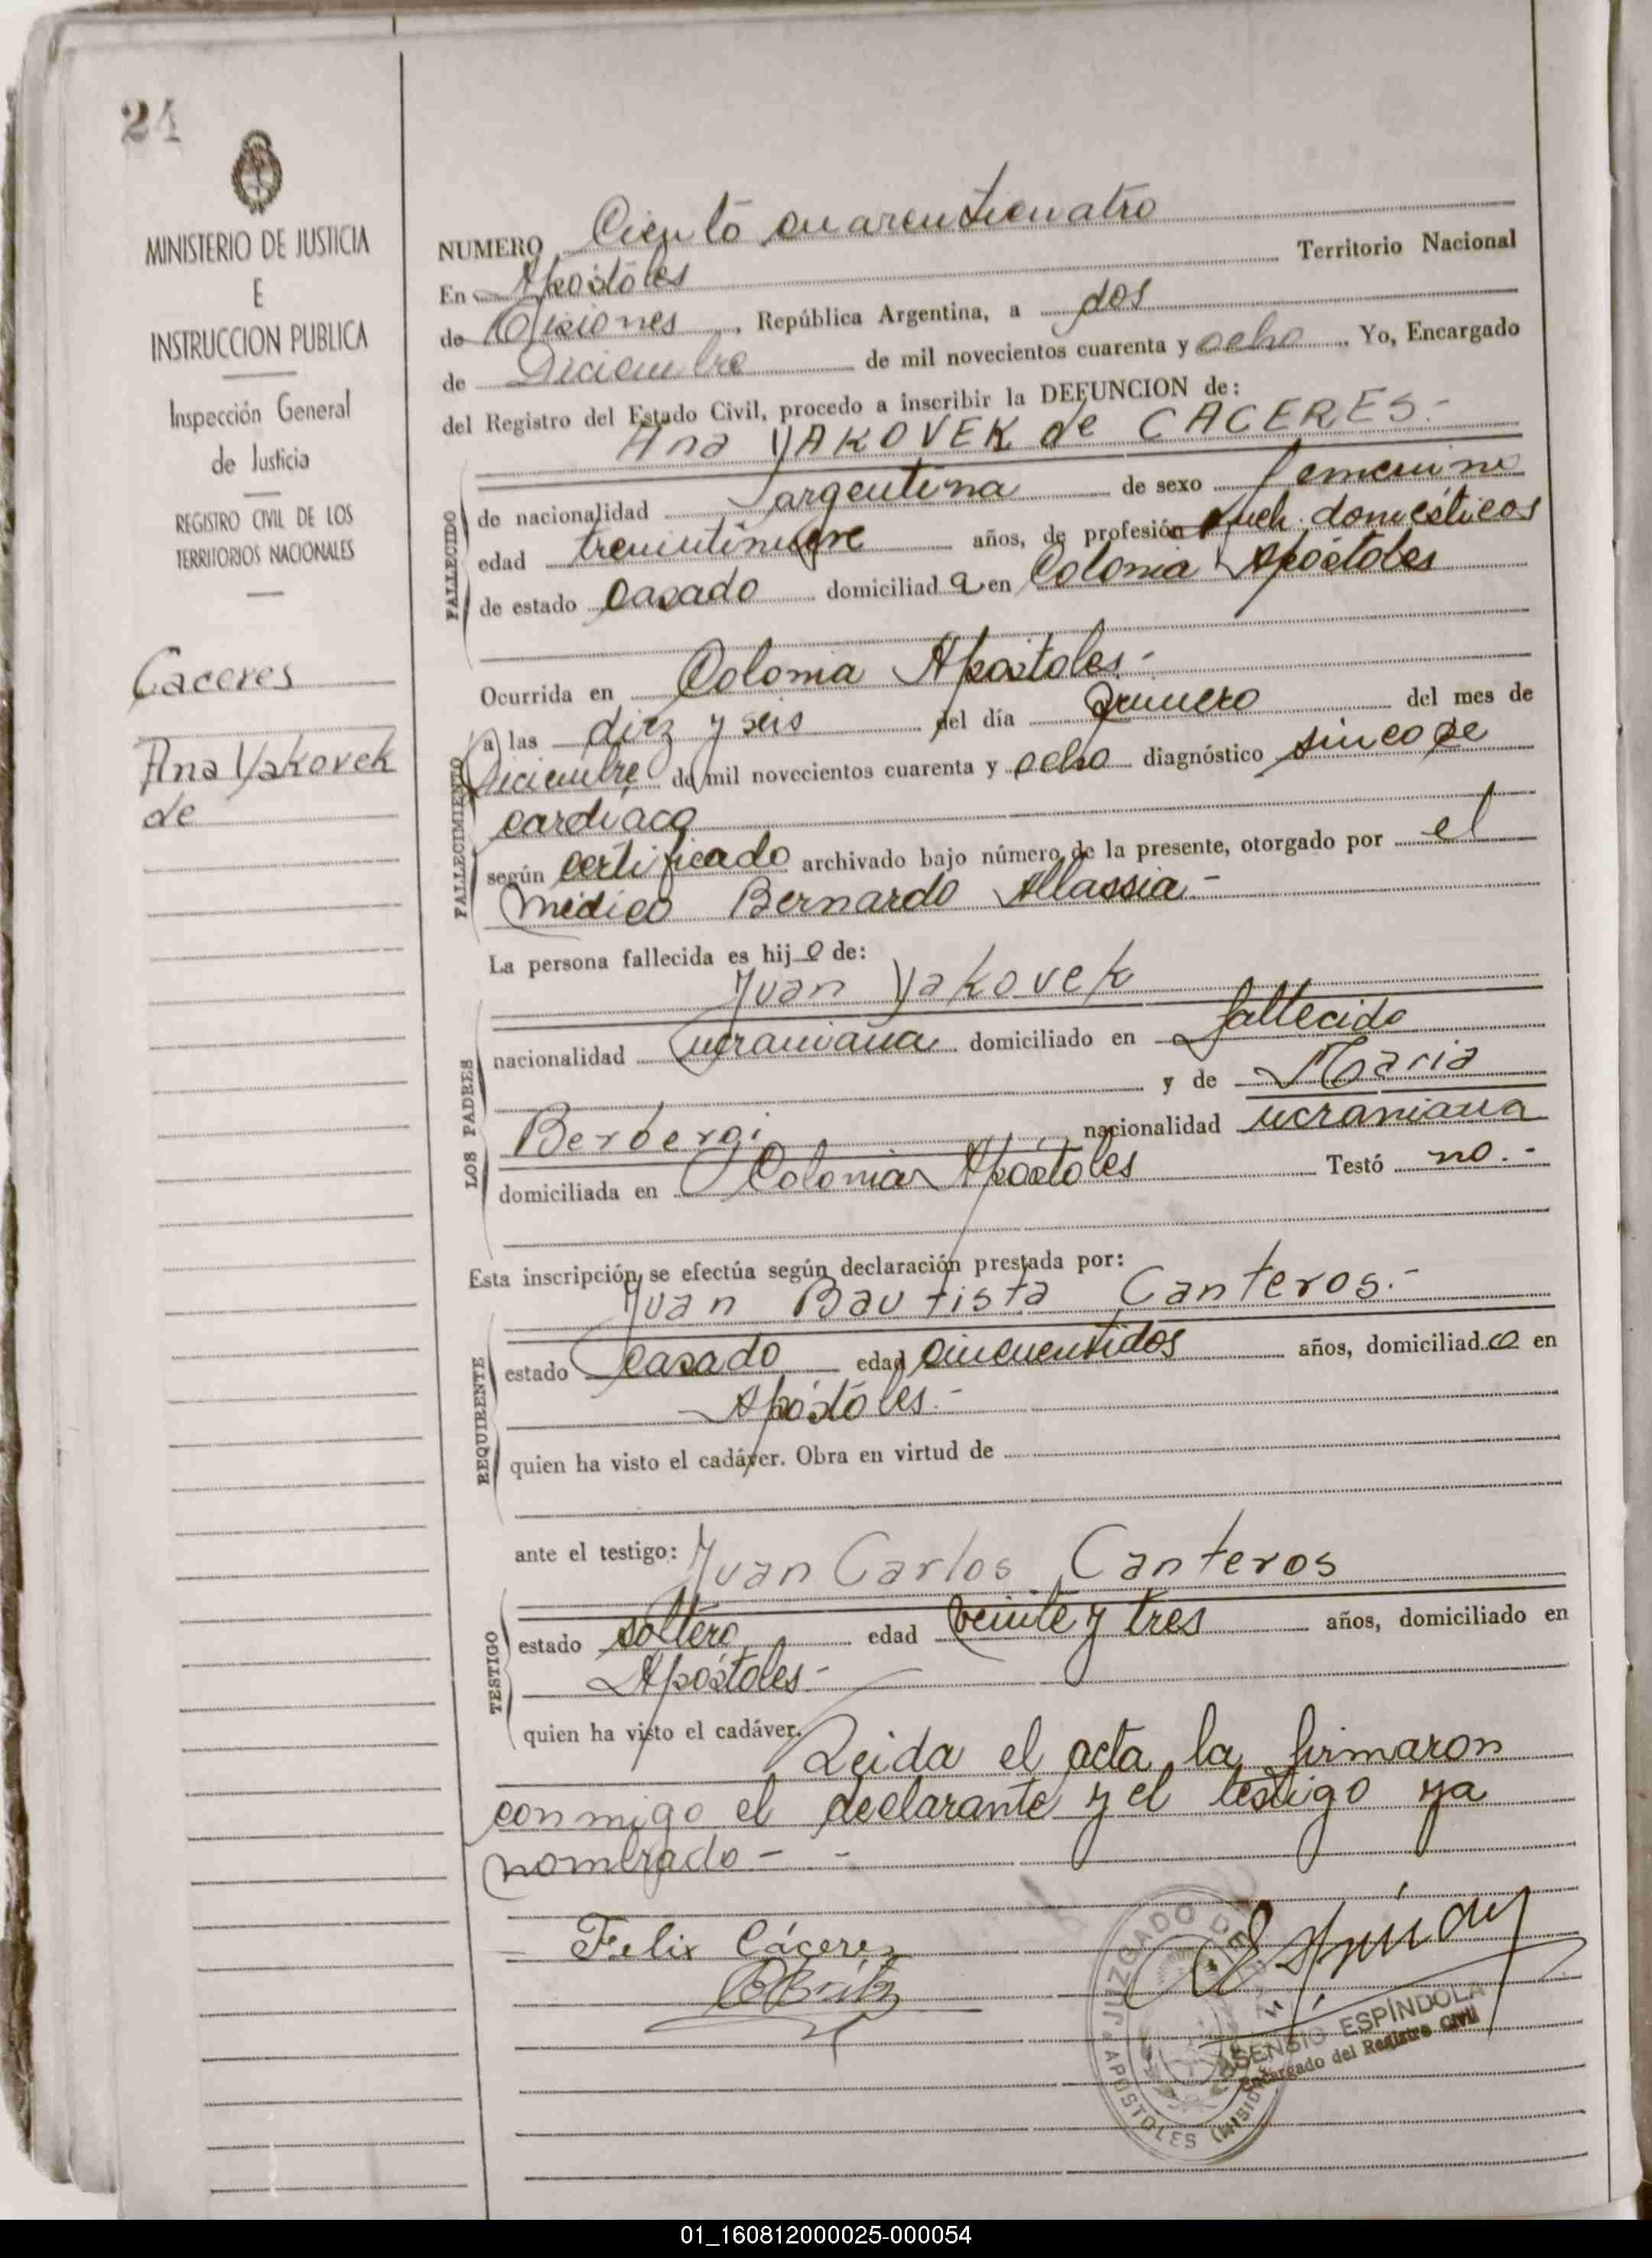 24
MINISTERIO DE JUSTICIA
E
INSTRUCCION PUBLICA
Inspección General
de Justicia
REGISTRO CIVIL DE LOS
TERRITORIOS NACIONALES
Caceres
Ana Yakovek
de
NUMERO Ciento cuarenticuatro
En Apóstoles Territorio Nacional
de Misiones, República Argentina, a dos
de Diciembre de mil novecientos cuarenta y ocho. Yo, Encargado
del Registro del Estado Civil, procedo a inscribir la DEFUNCION de:
Ana YAKOVEK de CACERES.-
FALLECIDO
de nacionalidad argentina de sexo femenino
edad treintinueve años, de profesión queh. domésticos
de estado casado domiciliad a en Colonia Apóstoles
FALLECIMIENTO
Ocurrida en Colonia Apóstoles.-
a las diez y seis del día primero del mes de
Diciembre de mil novecientos cuarenta y ocho diagnóstico sincope
cardiaco
según certificado archivado bajo número de la presente, otorgado por el
médico Bernardo Allassia.-
La persona fallecida es hij o de:
LOS PADRES
Juan Yakovek
nacionalidad ucraniana domiciliado en fallecido
y de Maria
Berbergi nacionalidad ucraniana
domiciliada en Colonia Apóstoles Testó no.-
Esta inscripción se efectúa según declaración prestada por:
REQUIRENTE
Juan Bautista Canteros.-
estado casado edad cincuentidos años, domiciliad o en
Apóstoles.-
quien ha visto el cadáver. Obra en virtud de
ante el testigo: Juan Carlos Canteros
TESTIGO
estado soltero edad veinte y tres años, domiciliado en
Apóstoles.-
quien ha visto el cadáver. Leida el acta la firmaron
conmigo el declarante y el testigo ya
nombrado - -
Felix Cáceres
JUZGADO DE PAZ
APOSTOLES (MISIONES)
ASENSIO ESPÍNDOLA
Encargado del Registro Civil
01_160812000025-000054